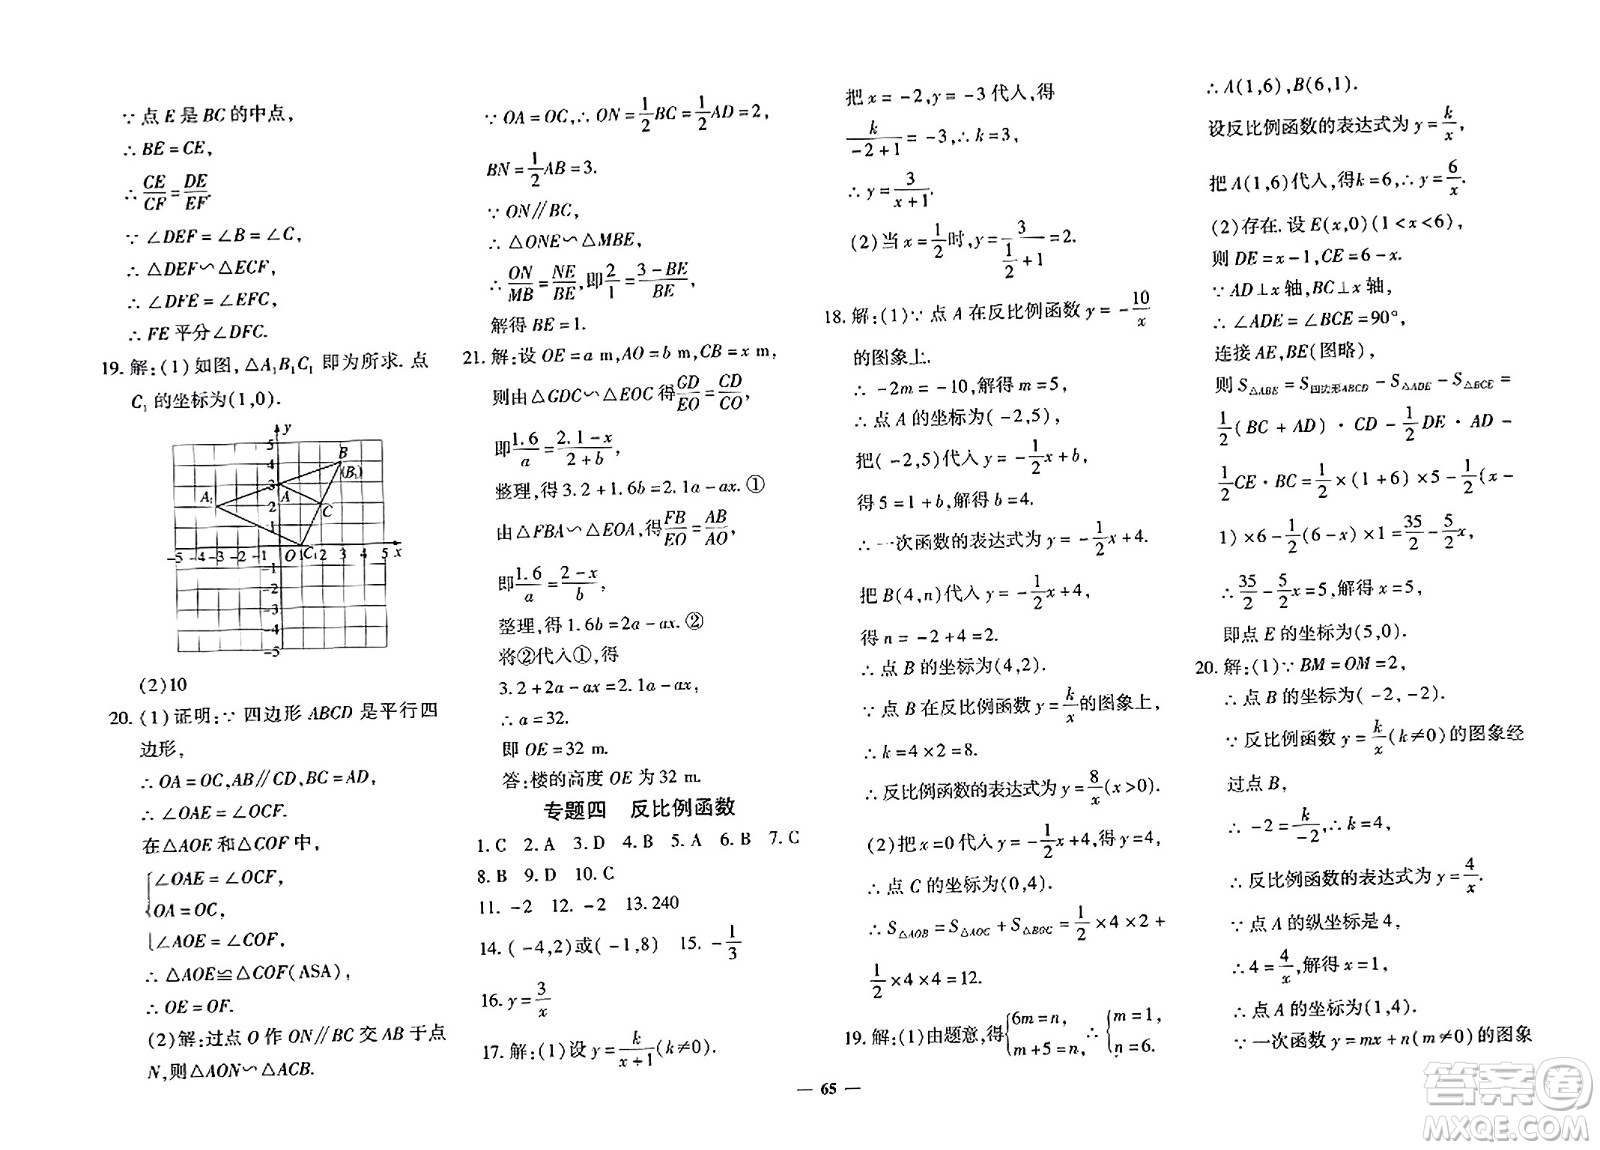 ∵点 E 是 BC 的中点,
∴BE=CE,
∴CE/CF=DE/EF.
∵∠DEF=∠B=∠C,
∴△DEF∽△ECF,
∴∠DFE=∠EFC,
∴FE 平分∠DFC.
19. 解:(1)如图,△A₁B₁C₁ 即为所求. 点
C₁ 的坐标为(1,0).
y
5
4
3
2
1
B
(B₁)
A₁
A
C
-5 -4 -3 -2 -1 O C₁ 1 2 3 4 5 x
-1
-2
-3
-4
-5
(2)10
20. (1)证明:∵四边形 ABCD 是平行四
边形,
∴OA=OC,AB∥CD,BC=AD,
∴∠OAE=∠OCF.
在△AOE 和△COF 中,
{∠OAE=∠OCF,
OA=OC,
∠AOE=∠COF,
∴△AOE≌△COF(ASA),
∴OE=OF.
(2)解:过点 O 作 ON∥BC 交 AB 于点
N,则△AON∽△ACB.
∵OA=OC,∴ON=1/2BC=1/2AD=2,
BN=1/2AB=3.
∵ON∥BC,
∴△ONE∽△MBE,
∴ON/MB=NE/BE,即2/1=(3-BE)/BE,
解得 BE=1.
21. 解:设 OE=a m,AO=b m,CB=x m,
则由△GDC∽△EOC得GD/EO=CD/CO,
即1.6/a=(2.1-x)/(2+b),
整理,得 3.2+1.6b=2.1a-ax. ①
由△FBA∽△EOA,得FB/EO=AB/AO,
即1.6/a=(2-x)/b,
整理,得 1.6b=2a-ax. ②
将②代入①,得
3.2+2a-ax=2.1a-ax,
∴a=32.
即 OE=32 m.
答:楼的高度 OE 为 32 m.
专题四 反比例函数
1. C 2. A 3. D 4. B 5. A 6. B 7. C
8. B 9. D 10. C
11. -2 12. -2 13. 240
14. (-4,2)或(-1,8) 15. -1/3
16. y=3/x
17. 解:(1)设 y=k/(x+1)(k≠0).
把 x=-2,y=-3 代入,得
k/(-2+1)=-3,∴k=3,
∴y=3/(x+1).
(2)当 x=1/2时,y=3/(1/2+1)=2.
18. 解:(1)∵点 A 在反比例函数 y=-10/x
的图象上.
∴-2m=-10,解得 m=5,
∴点 A 的坐标为(-2,5),
把(-2,5)代入 y=-1/2x+b,
得 5=1+b,解得 b=4.
∴一次函数的表达式为 y=-1/2x+4.
把 B(4,n)代入 y=-1/2x+4,
得 n=-2+4=2.
∴点 B 的坐标为(4,2).
∵点 B 在反比例函数 y=k/x的图象上,
∴k=4×2=8.
∴反比例函数的表达式为 y=8/x(x>0).
(2)把 x=0代入 y=-1/2x+4,得 y=4,
∴点 C 的坐标为(0,4).
∴S△AOB=S△AOC+S△BOC=1/2×4×2+
1/2×4×4=12.
19. 解:(1)由题意,得{6m=n, m+5=n,∴{m=1, n=6.
∴A(1,6),B(6,1).
设反比例函数的表达式为 y=k/x,
把 A(1,6)代入,得k=6,∴y=6/x.
(2)存在. 设 E(x,0)(1<x<6),
则 DE=x-1,CE=6-x.
∵AD⊥x 轴,BC⊥x 轴,
∴∠ADE=∠BCE=90°.
连接 AE,BE(图略),
则 S△ABE=S四边形ABCD-S△ADE-S△BCE=
1/2(BC+AD)·CD-1/2DE·AD-
1/2CE·BC=1/2×(1+6)×5-1/2(x-
1)×6-1/2(6-x)×1=35/2-5/2x.
∴35/2-5/2x=5,解得 x=5,
即点 E 的坐标为(5,0).
20. 解:(1)∵BM=OM=2,
∴点 B 的坐标为(-2,-2).
∵反比例函数 y=k/x(k≠0)的图象经
过点 B,
∴-2=k/-2,∴k=4,
∴反比例函数的表达式为 y=4/x.
∵点 A 的纵坐标是 4,
∴4=4/x,解得 x=1,
∴点 A 的坐标为(1,4).
∵一次函数 y=mx+n(m≠0)的图象
— 65 —
答案圈
MXQE.COM